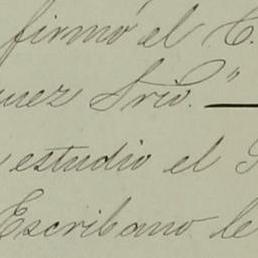 firmó el C.
Srio."
estudio el
Escribano le